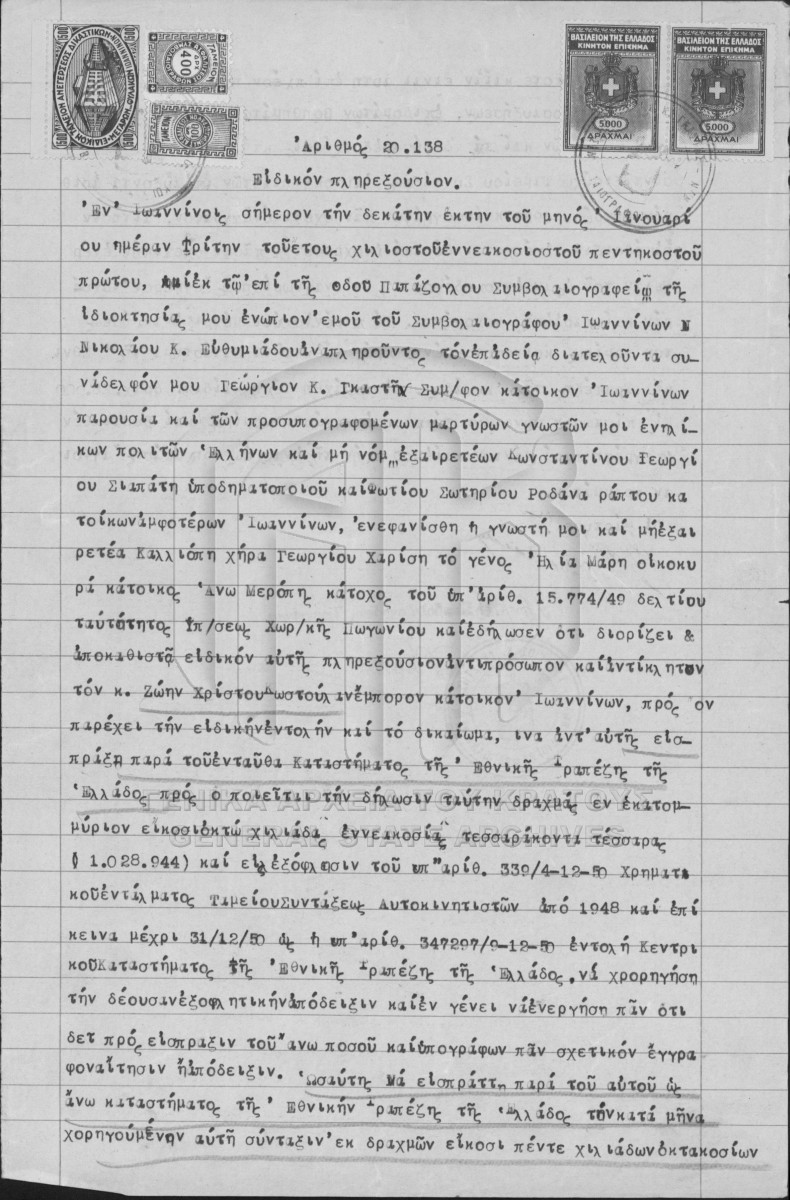 ΒΑΣΙΛΕΙΟΝ ΤΗΣ ΕΛΛΑΔΟΣ
ΚΙΝΗΤΟΝ ΕΠΙΣΗΜΑ
5000
ΔΡΑΧΜΑΙ
ΒΑΣΙΛΕΙΟΝ ΤΗΣ ΕΛΛΑΔΟΣ
ΚΙΝΗΤΟΝ ΕΠΙΣΗΜΑ
5000
ΔΡΑΧΜΑΙ
500
400
Ἀριθμός 20.138
Εἰδικόν πληρεξούσιον.
Ἐν Ἰωαννίνοις σήμερον τήν δεκάτην ἕκτην τοῦ μηνός Ἰανουαρί
ου ἡμέραν Τρίτην τοῦετους χιλιοστοῦἐννεακοσιοστοῦ πεντηκοστοῦ
πρώτου, καιἐκ τῷ ἐπί τῆς οδου Παπάζογλου Συμβολαιογραφείῳ τῆς
ἰδιοκτησίας μου ἐνώπιον ἐμοῦ τοῦ Συμβολαιογράφου Ἰωαννίνων Ν
Νικολάου Κ. Εὐθυμιάδουἀναπληροῦντος τόνἐπἀδείᾳ διατελοῦντα συ-
νάδελφόν μου Γεώργιον Κ. Γκαστῆ Συμ/φον κάτοικον Ἰωαννίνων
παρουσίᾳ καί τῶν προσυπογραφομένων μαρτύρων γνωστῶν μοι ἐνηλί-
κων πολιτῶν Ἑλλήνων καί μή νόμῳ ἐξαιρετέων Κωνσταντίνου Γεωργί
ου Σιαπάτη ὑποδηματοποιοῦ καίΦωτίου Σωτηρίου Ροδάνα ράπτου κα
τοίκωνἀμφοτέρων Ἰωαννίνων, ἐνεφανίσθη ἡ γνωστή μοι καί μήἐξαι
ρετέα Καλλιόπη χήρα Γεωργίου Χαρίση τό γένος Ἠλία Μάρη οἰκοκυ
ρά κάτοικος Ἄνω Μερόπης κάτοχος τοῦ ὑπ'ἀρίθ. 15.774/49 δελτίου
ταὐτότητος Ὑπ/σεως Χωρ/κῆς Πωγωνίου καίἐδήλωσεν ὅτι διορίζει &
ἀποκαθιστᾷ εἰδικόν αὐτῆς πληρεξούσιονἀντιπρόσωπον καίἀντίκλητον
τόν κ. Ζώην Χρίστου Κωστούλανἔμπορον κάτοικον Ἰωαννίνων, πρός ὅν
παρέχει τήν εἰδικήνἐντολήν καί τό δικαίωμα, ινα ἀντ'αὐτῆς εἰσ-
πράξῃ παρά τοῦἐνταῦθα Καταστήματος τῆς Ἐθνικῆς Τραπέζης τῆς
Ἑλλάδος πρός ὅ ποιεῖται τήν δήλωσιν ταύτην δραχμάς ἕν ἑκατομ-
μύριον εἰκοσιὀκτώ χιλιάδας ἐννεακοσίας τεσσαράκοντα τέσσαρας
( 1.028.944) καί εἰς ἐξόφλησιν τοῦ ὑπ'ἀρίθ. 339/4-12-50 Χρηματι
κοῦἐντάλματος ΤαμείουΣυντάξεως Αυτοκινητιστῶν ἀπό 1948 καί ἐπέ
κεινα μέχρι 31/12/50 ὡς ἡ ὑπ'ἀρίθ. 347297/9-12-50 ἐντολή Κεντρι
κοῦΚαταστήματος τῆς Ἐθνικῆς Τραπέζης τῆς Ἑλλάδος, νά χρορηγήσῃ
τήν δέουσανἐξοφλητικήνἀπόδειξιν καίἐν γένει νάἐνεργήσῃ πᾶν ὅτι
δει πρός εἴσπραξιν τοῦ ἄνω ποσοῦ καίὑπογράφων πᾶν σχετικόν ἔγγρα
φοναἴτησιν ἤἀπόδειξιν. Ὡσαύτης Νά εἰσπράττῃ παρά τοῦ αὐτοῦ ὡς
ἄνω καταστήματος τῆς Ἐθνικήν Τραπέζης τῆς Ἑλλάδος τόνκατά μῆνα
χορηγουμένην αὐτῇ σύνταξιν ἐκ δραχμῶν εἴκοσι πέντε χιλιάδωνὀκτακοσίων
ΓΕΝΙΚΑ ΑΡΧΕΙΑ ΤΟΥ ΚΡΑΤΟΥΣ
GENERAL STATE ARCHIVES